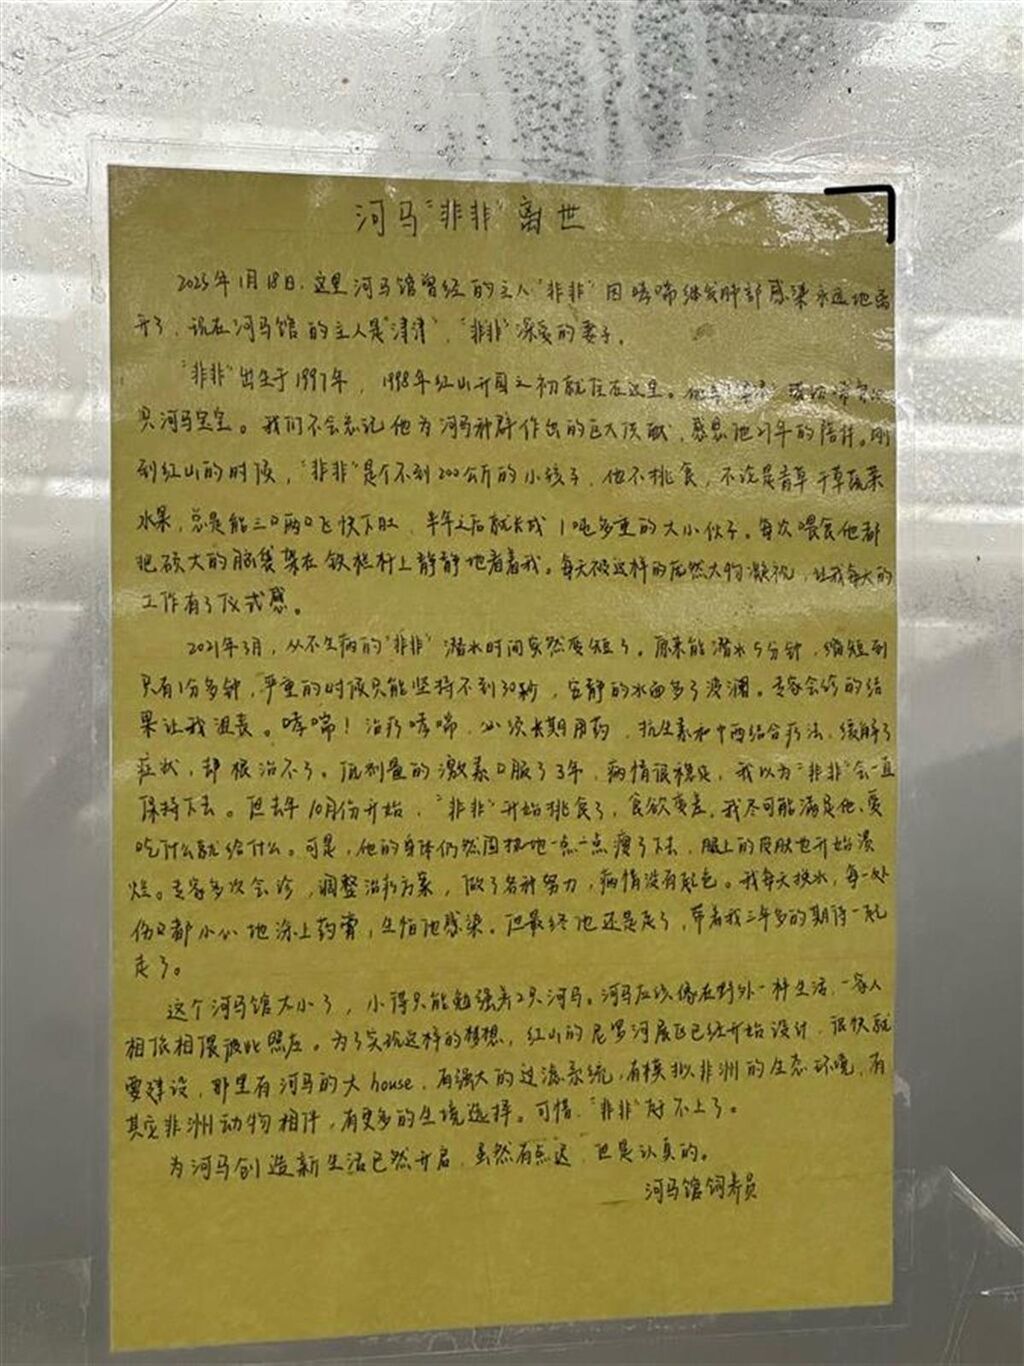 河马“非非”离世
2025年1月18日，这里河马馆曾经的主人“非非”因哮喘继发肺部感染永远地离
开了，现在河马馆的主人是“津津”，“非非”深爱的妻子。
“非非”出生于1997年，1998年红山开园之初就住在这里。他与“津津”成功
只河马宝宝。我们不会忘记他为河马种群作出的巨大贡献，感恩他27年的陪伴。刚
到红山的时候，“非非”是个不到200公斤的小孩子，他不挑食，不论是青草干草蔬菜
水果，总是能三口两口飞快下肚，半年之后就长成1吨多重的大小伙子。每次喂食他都
把硕大的脑袋架在铁栏杆上静静地看着我。每天被这样的庞然大物凝视，让我每天的
工作有了仪式感。
2021年3月，从不生病的“非非”潜水时间突然变短了。原来能潜水5分钟，缩短到
只有1分多钟，严重的时候只能坚持不到30秒，安静的水面多了波澜。专家会诊的结
果让我沮丧。哮喘！治疗哮喘，必须长期用药，抗生素和中西结合疗法，缓解了
症状，却根治不了。低剂量的激素口服了3年，病情很稳定，我以为“非非”会一直
保持下去。但去年10月份开始，“非非”开始挑食了，食欲变差，我尽可能满足他，爱
吃什么就给什么。可是，他的身体仍然固执地一点一点瘦了下去，腿上的皮肤也开始溃
烂。专家多次会诊，调整治疗方案，做了各种努力，病情没有起色。我每天换水，每一处
伤口都小心地涂上药膏，生怕他感染。但最终他还是走了，带着我三年多的期待一起
走了。
这个河马馆太小了，小得只能勉强养2只河马。河马应该像在野外一种生活，一家人
相依相偎彼此照应。为了实现这样的梦想，红山的尼罗河展区已经开始设计，很快就
要建设，那里有河马的大house，有强大的过滤系统，有模拟非洲的生态环境，有
其它非洲动物相伴，有更多的生境选择。可惜，“非非”赶不上了。
为河马创造新生活已然开启，虽然有点迟，但是认真的。
河马馆饲养员